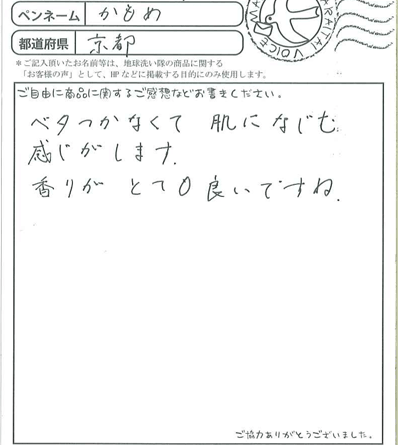 ペンネーム かもめ
都道府県 京都
＊ご記入頂いたお名前等は、地球洗い隊の商品に関する
「お客様の声」として、HPなどに掲載する目的にのみ使用します。
ご自由に商品に関するご感想などお書きください。
ベタつかなくて 肌になじむ
感じがします.
香りが とても良いですね.
ご協力ありがとうございました。
ARAITAI VOICE